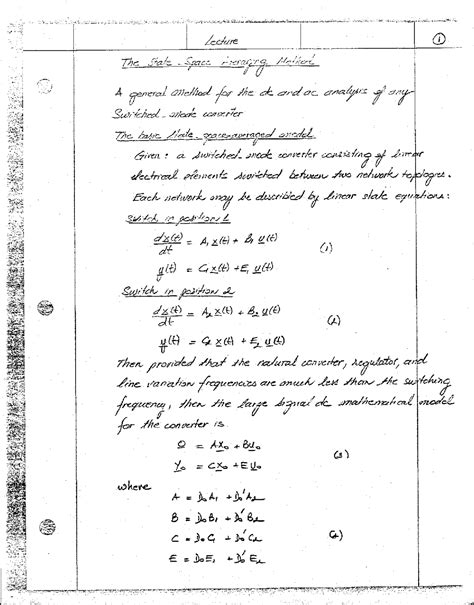 Lecture
1
The State-Space Averaging Method
A general method for the dc and ac analysis of any
Switched-mode converter
The basic state-space averaged model
Given: a switched-mode converter consisting of linear
electrical elements switched between two network toplogies.
Each network may be described by linear state equations:
Switch in position 1
dx(t)/dt = A₁ x(t) + B₁ u(t)
(1)
y(t) = C₁ x(t) + E₁ u(t)
Switch in position 2
dx(t)/dt = A₂ x(t) + B₂ u(t)
(2)
y(t) = C₂ x(t) + E₂ u(t)
Then provided that the natural converter, regulator, and
line variation frequencies are much less than the switching
frequency, then the large signal dc mathematical model
for the converter is
0 = A x₀ + B u₀
(3)
y₀ = C x₀ + E u₀
where
A = D₀A₁ + D₀'A₂
B = D₀B₁ + D₀'B₂
C = D₀C₁ + D₀'C₂
(4)
E = D₀E₁ + D₀'E₂